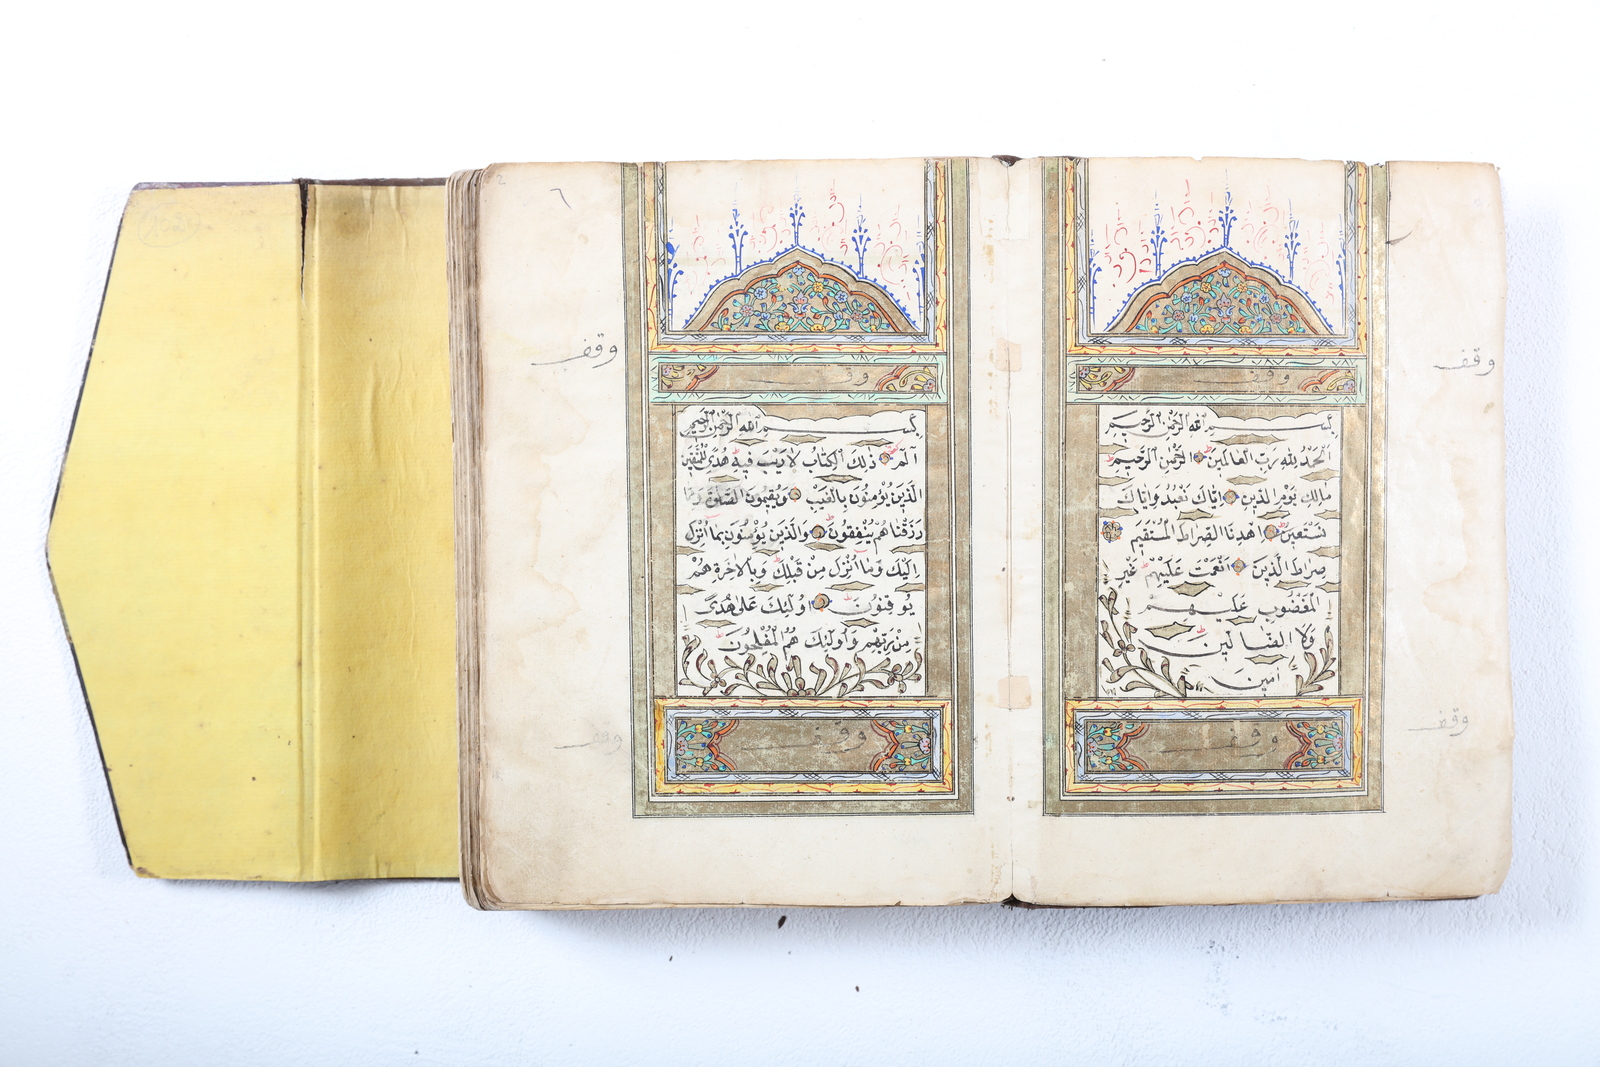 وقف
وقف
بسم الله الرحمن الرحيم
اَلْحَمْدُ لِلّٰهِ رَبِّ الْعَالَمِينَ الرَّحْمٰنِ الرَّحِيمِ
مَالِكِ يَوْمِ الدِّينِ اِيَّاكَ نَعْبُدُ وَاِيَّاكَ
نَسْتَعِينُ اِهْدِنَا الصِّرَاطَ الْمُسْتَقِيمَ
صِرَاطَ الَّذِينَ اَنْعَمْتَ عَلَيْهِمْ غَيْرِ
الْمَغْضُوبِ عَلَيْهِمْ
وَلَا الضَّالِّينَ
اٰمين
وقف
وقف
وقف
وقف
٦
بسم الله الرحمن الرحيم
الٓمٓ ذٰلِكَ الْكِتَابُ لَا رَيْبَ فِيهِ هُدًى لِلْمُتَّقِينَ
الَّذِينَ يُؤْمِنُونَ بِالْغَيْبِ وَيُقِيمُونَ الصَّلٰوةَ وَمِمَّا
رَزَقْنَاهُمْ يُنْفِقُونَ وَالَّذِينَ يُؤْمِنُونَ بِمَا اُنْزِلَ
اِلَيْكَ وَمَا اُنْزِلَ مِنْ قَبْلِكَ وَبِالْاٰخِرَةِ هُمْ
يُوقِنُونَ اُولٰئِكَ عَلٰى هُدًى
مِنْ رَبِّهِمْ وَاُولٰئِكَ هُمُ الْمُفْلِحُونَ
وقف
وقف